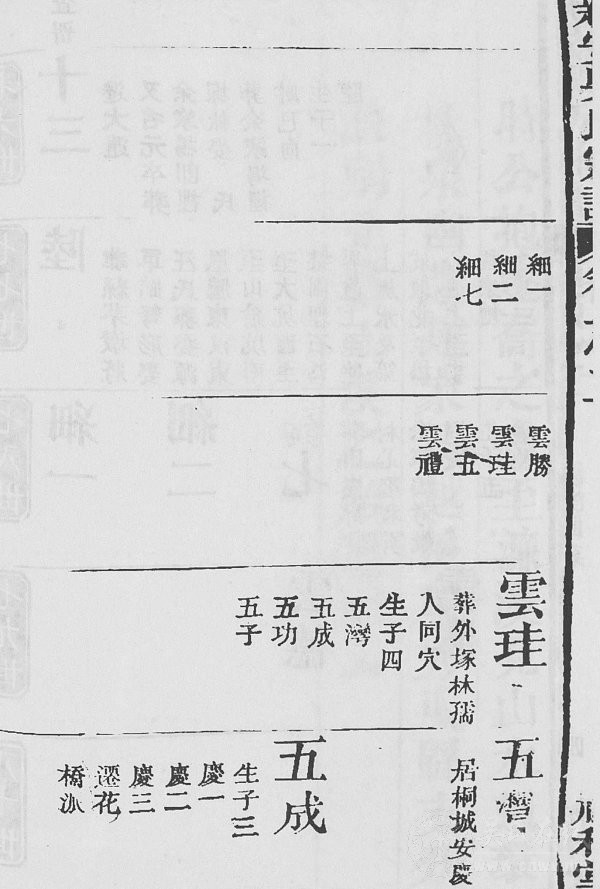 細一
細二
細七
雲勝
雲珪
雲五
雲禮
雲珪
葬外塚林孺
人同穴
生子四
五灣
五成
五功
五子
五灣
居桐城安慶
五成
生子三
慶一
慶二
慶三
遷花
橋派